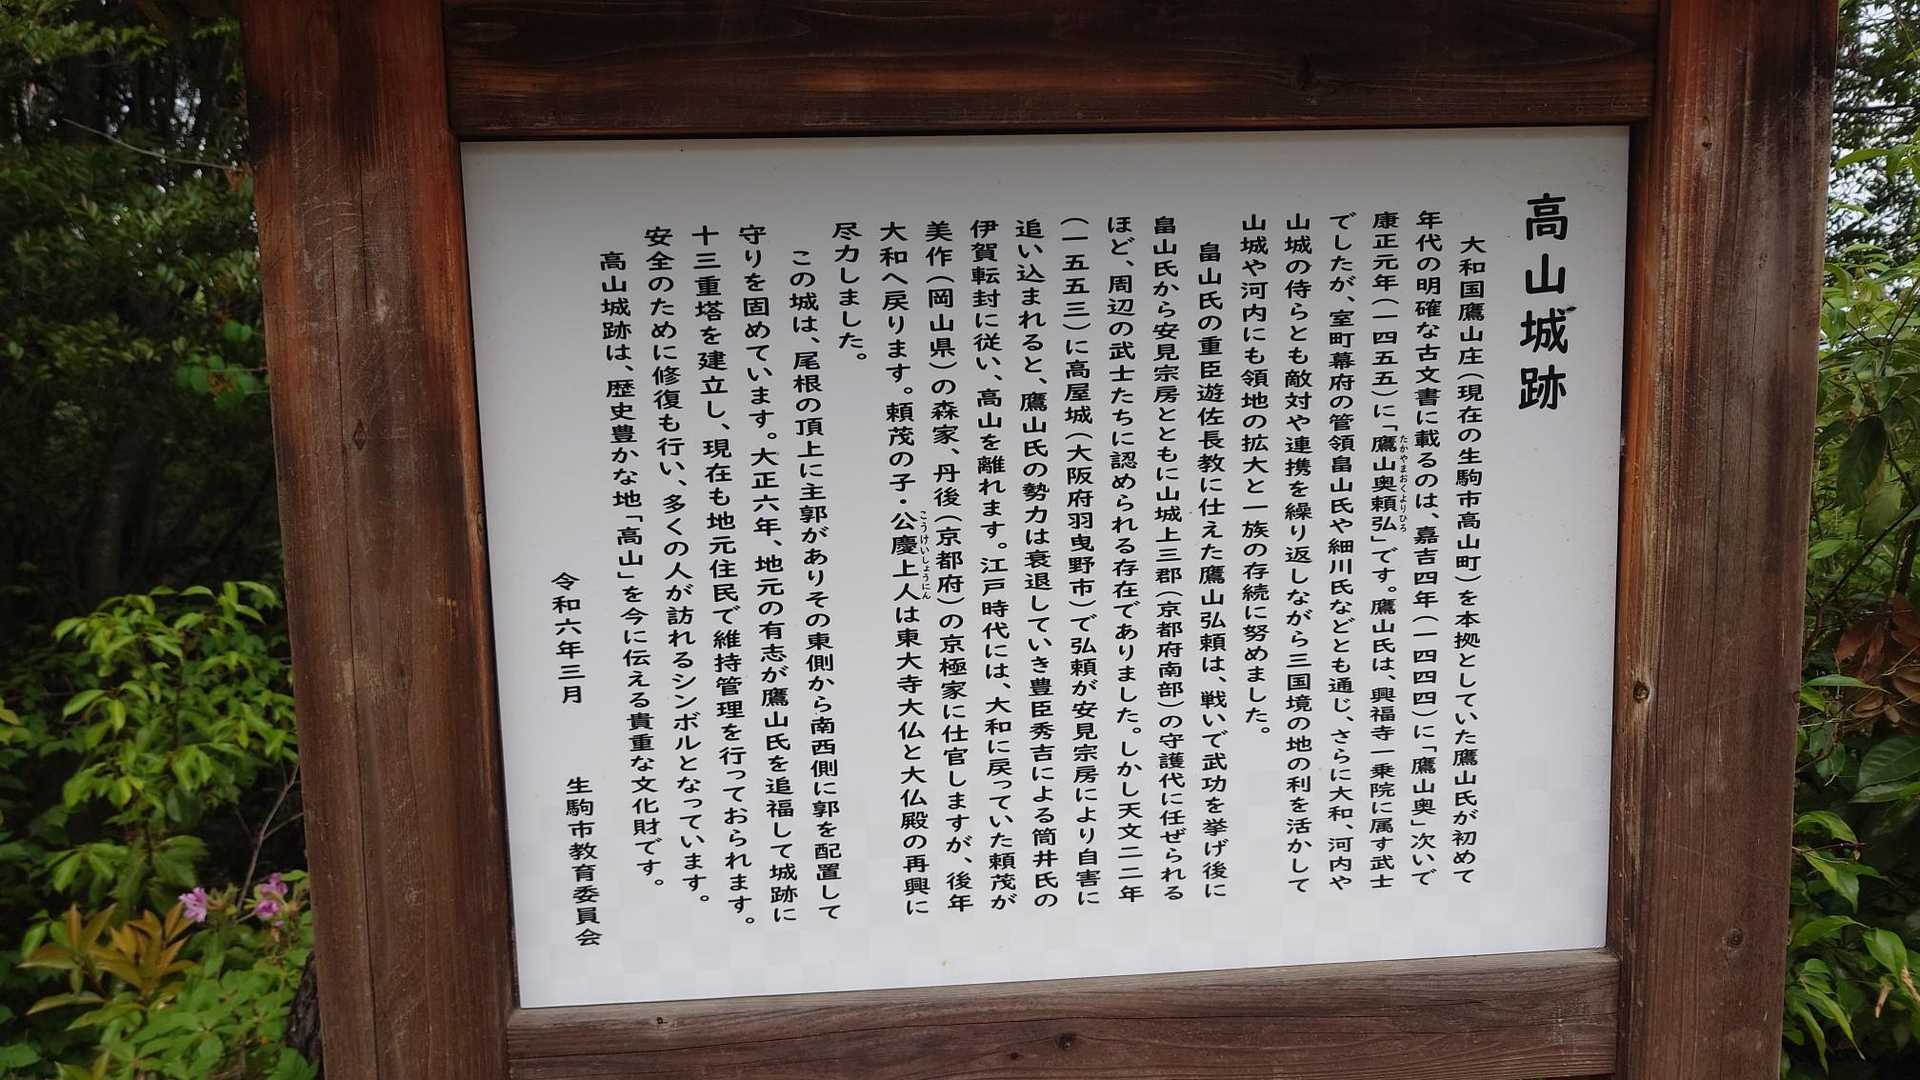 高山城跡
大和国鷹山庄(現在の生駒市高山町)を本拠としていた鷹山氏が初めて
年代の明確な古文書に載るのは、嘉吉四年(一四四四)に「鷹山奥」次いで
康正元年(一四五五)に「鷹山奥頼弘」です。鷹山氏は、興福寺一乗院に属す武士
たかやまおくよりひろ
でしたが、室町幕府の管領畠山氏や細川氏などとも通じ、さらに大和、河内や
山城の侍らとも敵対や連携を繰り返しながら三国境の地の利を活かして
山城や河内にも領地の拡大と一族の存続に努めました。
畠山氏の重臣遊佐長教に仕えた鷹山弘頼は、戦いで武功を挙げ後に
畠山氏から安見宗房とともに山城上三郡(京都府南部)の守護代に任ぜられる
ほど、周辺の武士たちに認められる存在でありました。しかし天文二二年
(一五五三)に高屋城(大阪府羽曳野市)で弘頼が安見宗房により自害に
追い込まれると、鷹山氏の勢力は衰退していき豊臣秀吉による筒井氏の
伊賀転封に従い、高山を離れます。江戸時代には、大和に戻っていた頼茂が
美作(岡山県)の森家、丹後(京都府)の京極家に仕官しますが、後年
大和へ戻ります。頼茂の子・公慶上人は東大寺大仏と大仏殿の再興に
こうけいしょうにん
尽力しました。
この城は、尾根の頂上に主郭がありその東側から南西側に郭を配置して
守りを固めています。大正六年、地元の有志が鷹山氏を追福して城跡に
十三重塔を建立し、現在も地元住民で維持管理を行っておられます。
安全のために修復も行い、多くの人が訪れるシンボルとなっています。
高山城跡は、歴史豊かな地「高山」を今に伝える貴重な文化財です。
令和六年三月 生駒市教育委員会